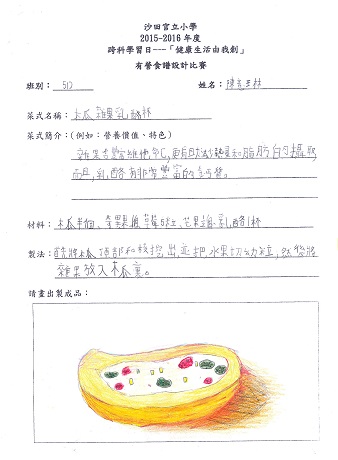 沙田官立小學
2015-2016年度
跨科學習日---「健康生活由我創」
有營食譜設計比賽
班別： 5D 姓名： 陳
菜式名稱： 木瓜雜果乳酪杯
菜式簡介：(例如：營養價值、特色)
雜果含豐富維他命C，更有助減少熱量和脂肪的攝取，
而且，乳酪有非常豐富的鈣質。
材料： 木瓜半個、蘋果個、草莓、芒果、乳酪1杯
製法： 先將木瓜頂部和核挖出，並把水果切幼粒，然後將
雜果放入木瓜裏。
請畫出製成品：